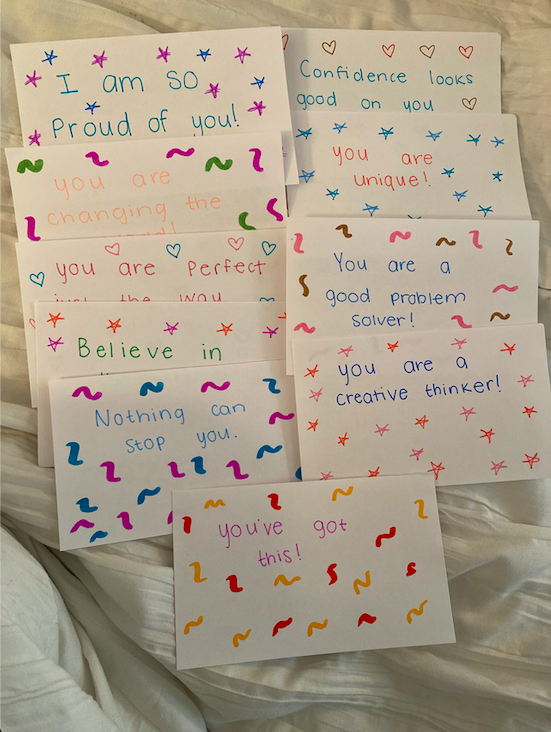 I am so
Proud of you!
Confidence looks
good on you
you are
changing the
you are
unique!
you are Perfect
just the way
You are a
good problem
solver!
Believe in
you are a
creative thinker!
Nothing can
stop you.
you've got
this!